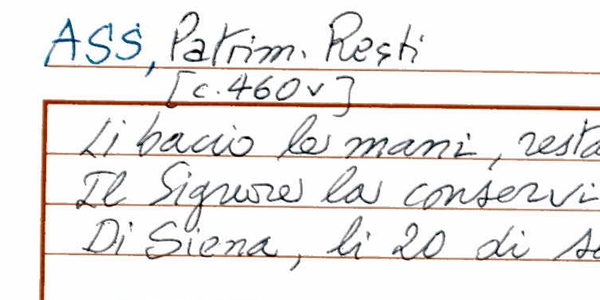 ASS, Patrim. Resti
[c. 460v]
Li bacio le mani, resta
Il Signore la conservi
Di Siena, li 20 di se